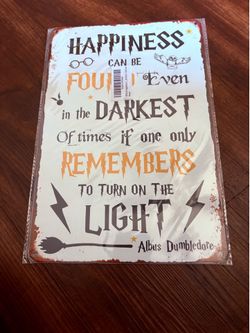 HAPPINESS
CAN BE
FOUND Even
in the DARKEST
Of times if one only
REMEMBERS
TO TURN ON THE
LIGHT
Albus Dumbledore